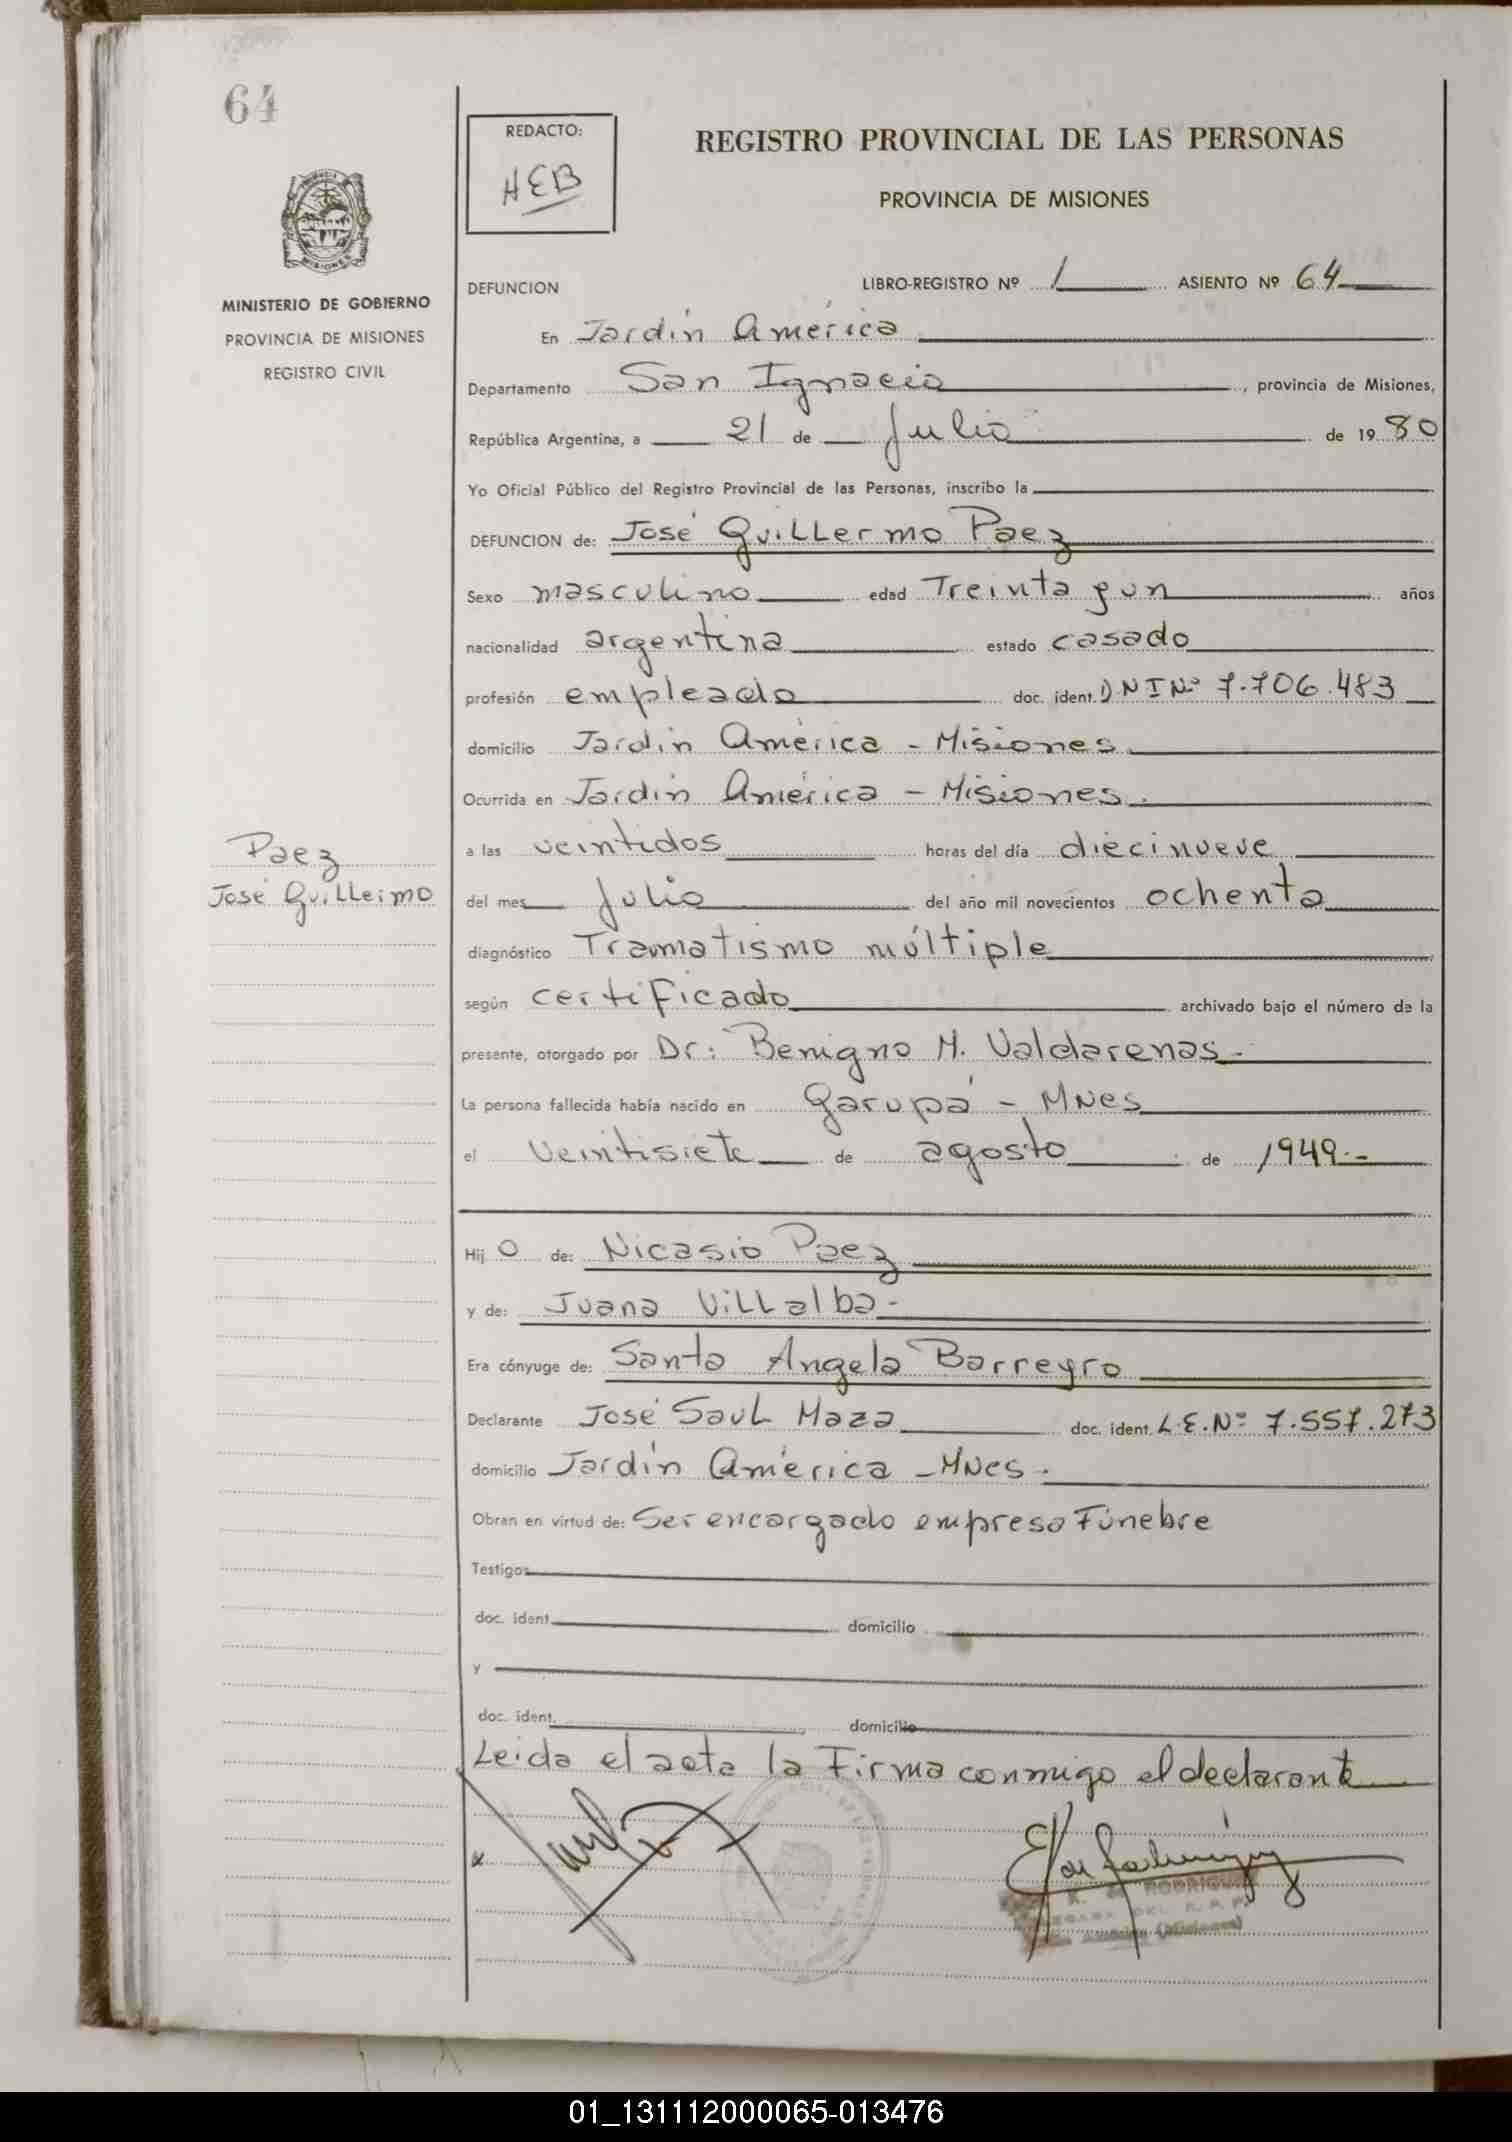 64
REDACTO:
HEB
REGISTRO PROVINCIAL DE LAS PERSONAS
PROVINCIA DE MISIONES
MISIONES
MINISTERIO DE GOBIERNO
PROVINCIA DE MISIONES
REGISTRO CIVIL
DEFUNCION LIBRO-REGISTRO Nº 1 ASIENTO Nº 64
En Jardín América
Departamento San Ignacio, provincia de Misiones,
República Argentina, a 21 de Julio de 1980
Yo Oficial Público del Registro Provincial de las Personas, inscribo la
DEFUNCION de: José Guillermo Paez
Sexo masculino edad Treinta y un años
nacionalidad argentina estado casado
profesión empleado doc. ident. D.N.I Nº 7.706.483
domicilio Jardín América - Misiones
Ocurrida en Jardín América - Misiones.
a las veintidos horas del día diecinueve
Paez
José Guillermo
del mes Julio del año mil novecientos ochenta
diagnóstico Tramatismo múltiple
según certificado archivado bajo el número de la
presente, otorgado por Dr: Benigno M. Valdarenas.
La persona fallecida había nacido en Garupá - Mnes
el Veintisiete de agosto de 1949.-
Hijo de: Nicasio Paez
y de: Juana Villalba-
Era cónyuge de: Santa Angela Barreyro
Declarante José Saul Maza doc. ident. L.E.Nº 7.557.273
domicilio Jardín América - Mnes.
Obran en virtud de: Ser encargado empresa Fúnebre
Testigos
doc. ident. domicilio
y
doc. ident. domicilio
Leida el acta la Firma conmigo el declarante
01_131112000065-013476